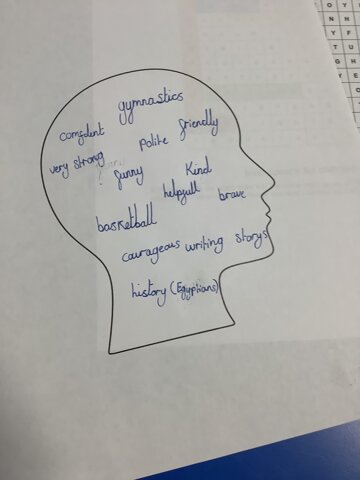 gymnastics
comfident
Polite
friendly
very strong
funny
Kind
helpfull
brave
basketball
courageous
writing storys
history (Egyptians)
O Y
N Y F
T U